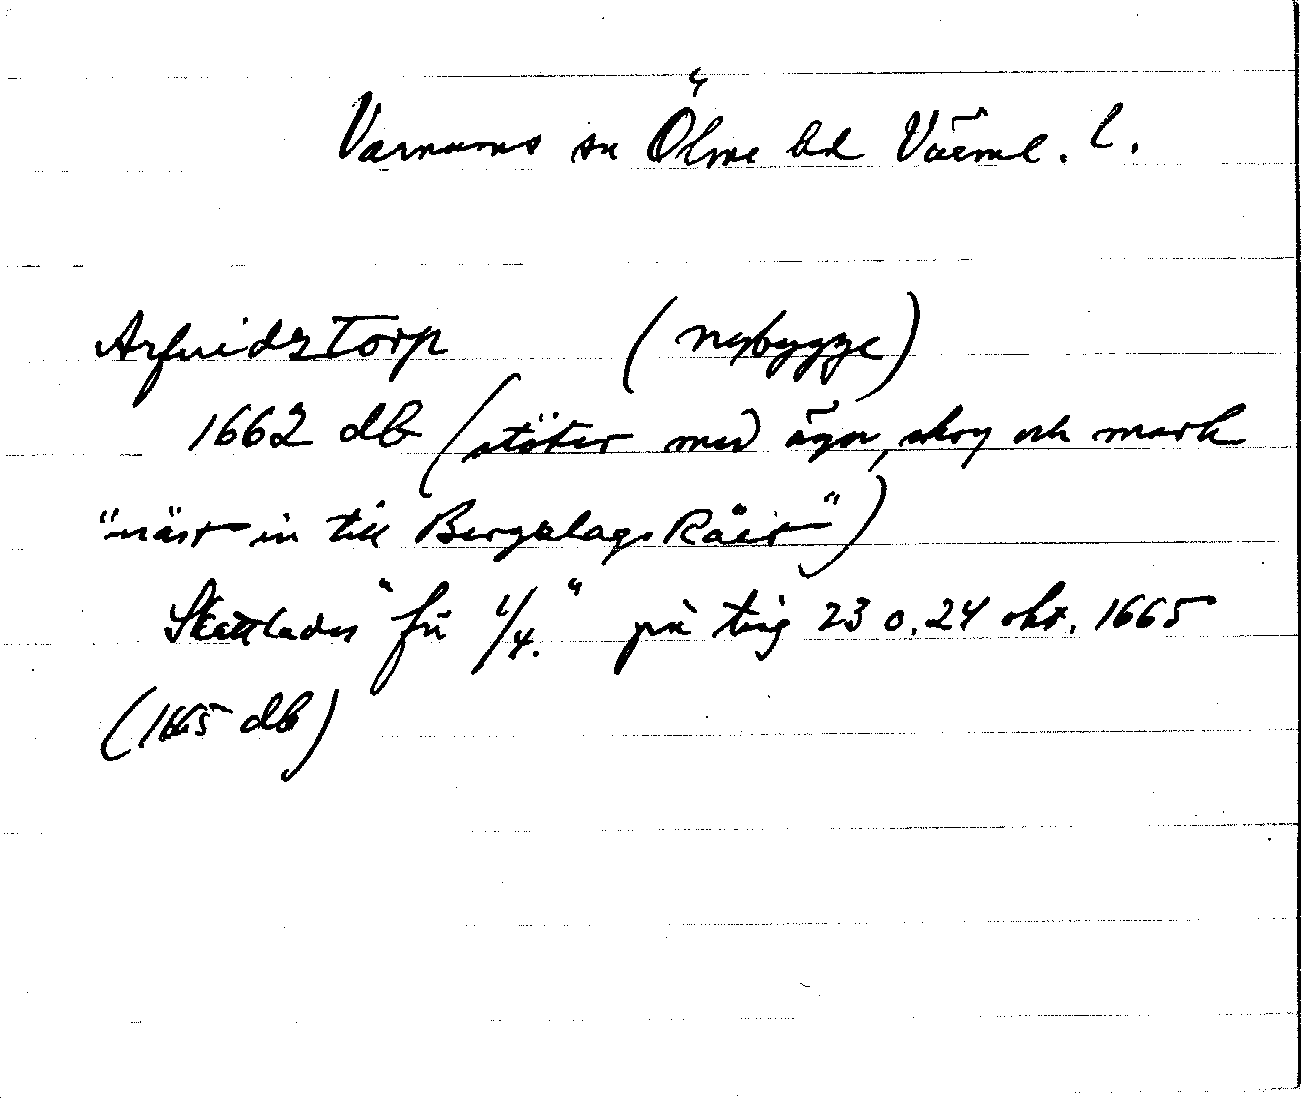 Varnums sn Ölme hd Värml. l.
Arfuidztorp (nybygge)
1662 db (stöter med ägor, skog och mark
"näst in till Bergzlags Råår")
Skattlades "för 1/4." på ting 23 o. 24 okt. 1665
(1665 db)